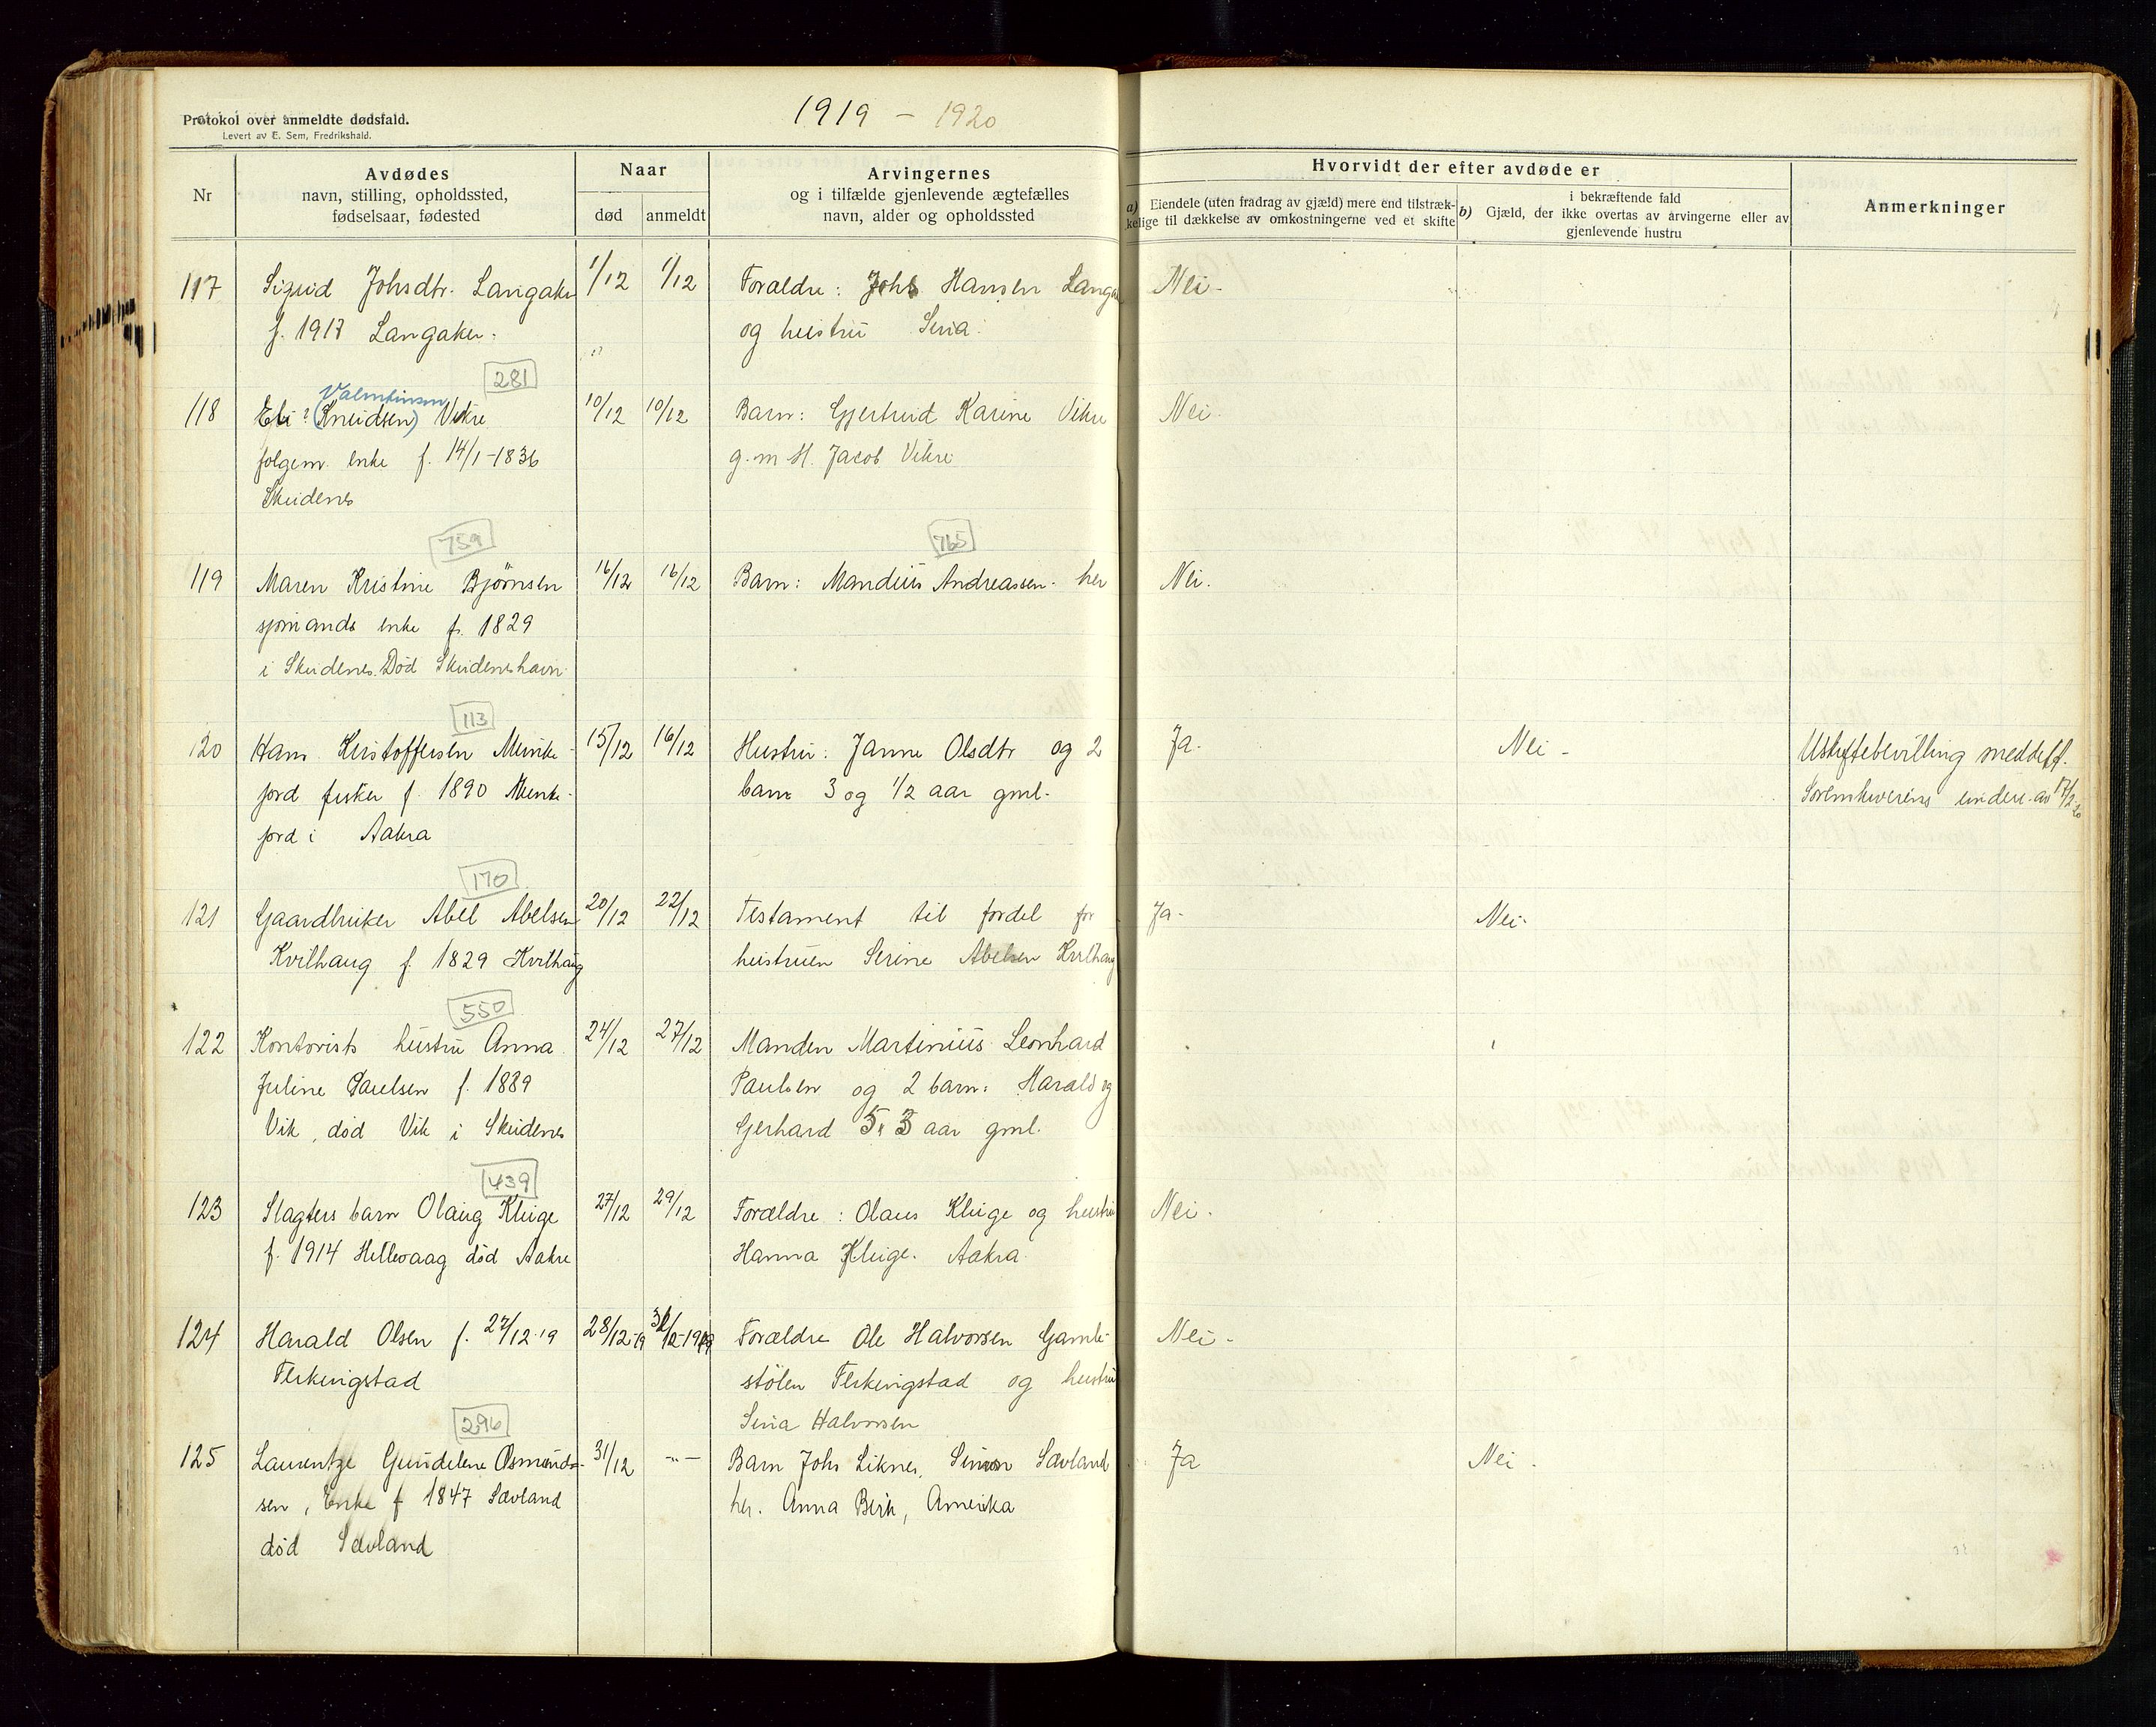 Protokol over anmeldte dødsfald.
Levert av E. Sem, Fredrikshald.
1919 – 1920
Nr
Avdødes
navn, stilling, opholdssted,
fødselsaar, fødested
Naar
død
anmeldt
Arvingernes
og i tilfælde gjenlevende ægtefælles
navn, alder og opholdssted
Hvorvidt der efter avdøde er
a) Eiendele (uten fradrag av gjæld) mere end tilstræk-
kelige til dækkelse av omkostningerne ved et skifte
b) i bekræftende fald
Gjæld, der ikke overtas av arvingerne eller av
gjenlevende hustru
Anmerkninger
117 Sigrid Johsdtr. Langaker 1/12 1/12 Forældre: Johs Hansen Langa Nei-
f. 1917 Langaker. og hustru Sina.
281
Valentinsen
118 Eli? (Knudsen) Vikre 10/12 10/12 Barn: Gjertrud Karine Vikre Nei.
folgem. enke f. 14/1-1836 g.m H. Jacob Vikre
Skudenes
759 765
119 Maren Kristine Bjørnsen 16/12 16/12 Barn: Mandius Andreassen- her Nei.
sjømands enke f. 1829
i Skudenes. Død Skudeneshavn
113
120 Hans Kristoffersen Munke- 15/12 16/12 Hustru: Janne Olsdtr og 2 Ja- Nei- Uskiftebevilling meddelt.
jord fisker f. 1890 Munke- barn 3 og 1/2 aar gml. Sorenskriverens underr. av 17/2 20
jord i Aakra
170
121 Gaardbruker Abel Abelsen 20/12 22/12 Testament til fordel for Ja- Nei-
Kvilhaug f. 1829 Kvilhaug hustruen Serine Abelsen Kvilhaug
550
122 Kontorists hustru Anna 24/12 27/12 Manden Martinius Leonhard
Juline Paulsen f. 1889 Paulsen og 2 barn: Harald og
Vik, død Vik i Skudenes Gerhard 5 3 aar gml.
439
123 Slagters barn Olaug Kluge 27/12 29/12 Forældre: Olaus Kluge og hustru Nei.
f. 1914 Hillevaag død Aakre Hanna Kluge. Aakra.
124 Harald Olsen f. 27/12-19 28/12-19 31/12-1919 Forældre Ole Halvorsen Gamle- Nei-
Ferkingstad stølen Ferkingstad og hustru
Sina Halvorsen
296
125 Laurentze Gundelene Osmunds- 31/12 -"- Barn Johs Liknes, Simon Sævland Ja Nei.
sen, Enke f 1847 Sævland her. Anna Birk, Amerika
død Sævland